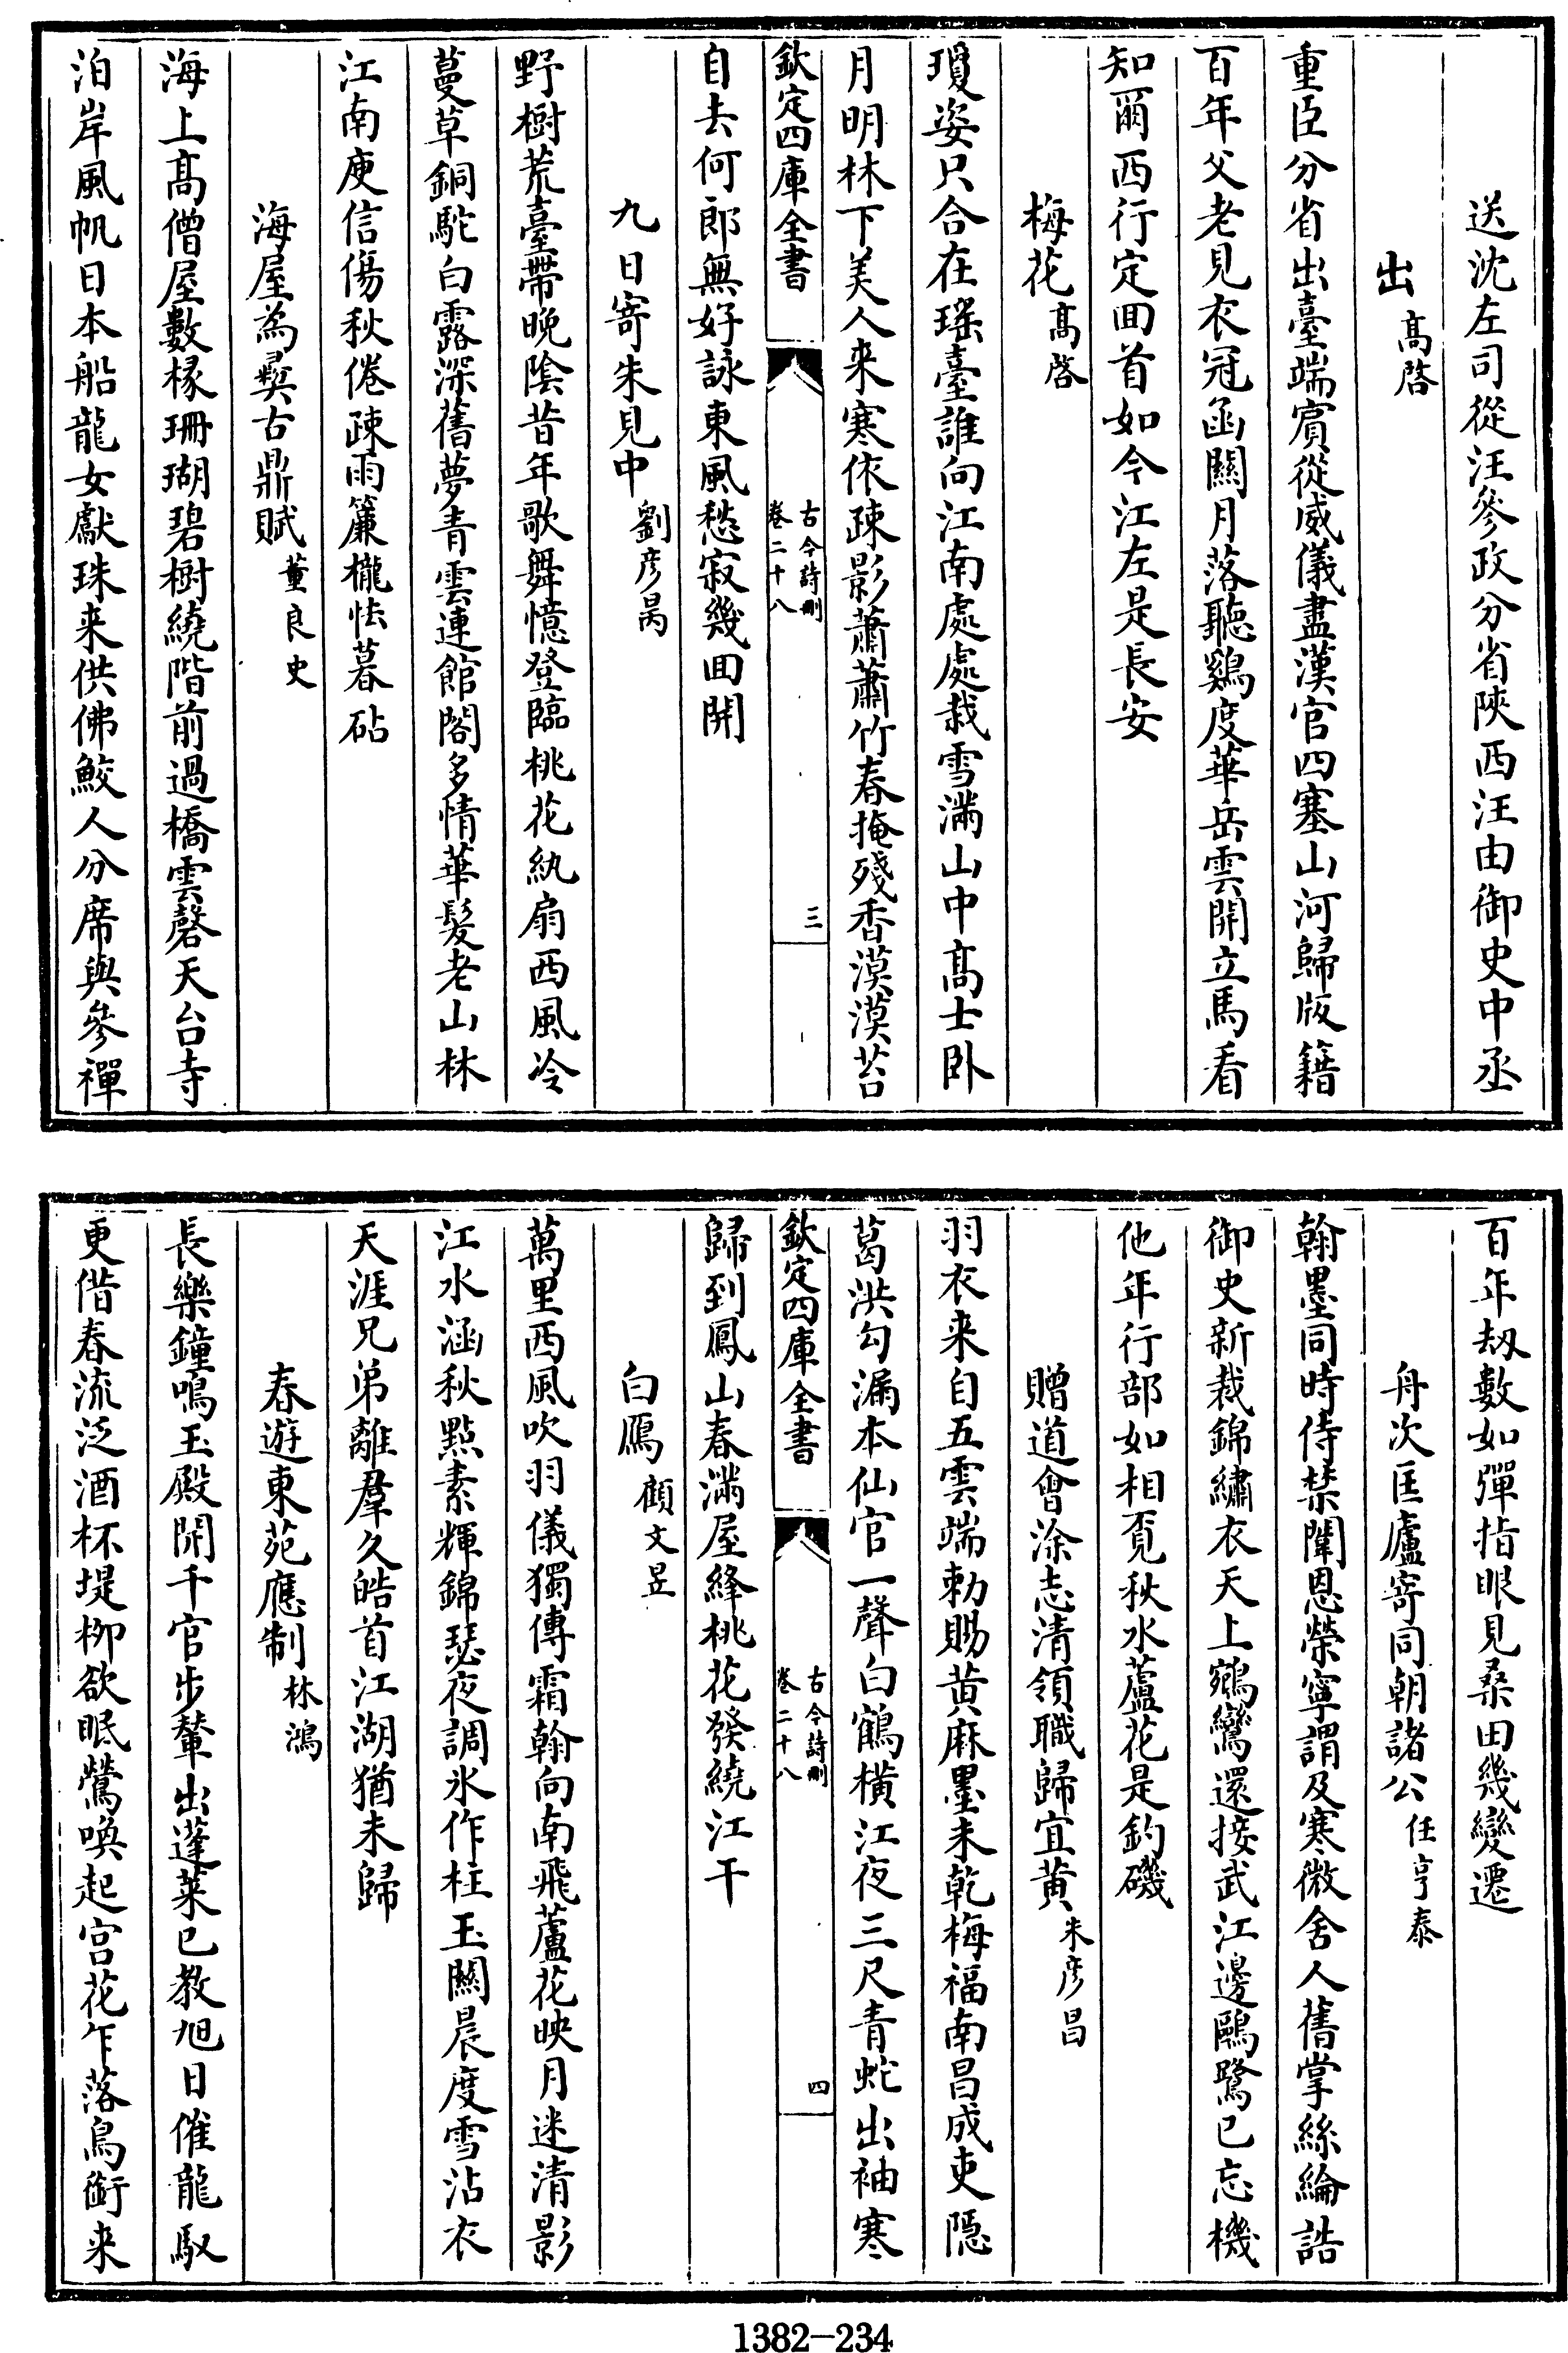 送沈左司從汪參政分省陜西汪由御史中丞
出髙啓
重臣分省出臺端賔從威儀盡漢官四塞山河歸版籍
百年父老見衣冠函闗月落聽鷄度華岳雲開立馬看
知爾西行定回首如今江左是長安
梅花髙啓
瓊姿只合在瑶臺誰向江南處處栽雪滿山中髙士卧
月明林下美人来寒依疎影蕭蕭竹春掩殘香漠漠苔
欽定四庫全書
古今詩刪
卷二十八
三
自去何郎無好詠東風愁寂幾回開
九日寄朱見中劉彦昺
野樹荒臺帶晚陰昔年歌舞憶登臨桃花紈扇西風冷
蔓草銅駝白露深舊夢青雲連館閣多情華髪老山林
江南庾信傷秋倦疎雨簾櫳怯暮砧
海屋為彛古鼎賦董良史
海上髙僧屋數椽珊瑚碧樹繞階前過橋雲磬天台寺
泊岸風帆日本船龍女獻珠来供佛鮫人分席與參禪
百年刼數如彈指眼見桑田幾變遷
舟次匡廬寄同朝諸公任亨泰
翰墨同時侍禁闈恩榮寧謂及寒微舍人舊掌絲綸誥
御史新裁錦繡衣天上鵷鸞還接武江邊鷗鷺已忘機
他年行部如相覔秋水蘆花是釣磯
贈道會涂志清領職歸宜黄朱彦昌
羽衣来自五雲端勅賜黄麻墨未乾梅福南昌成吏隠
葛洪勾漏本仙官一聲白鶴横江夜三尺青蛇出袖寒
欽定四庫全書
古今詩刪
卷二十八
四
歸到鳳山春滿屋絳桃花發繞江干
白鴈顧文昱
萬里西風吹羽儀獨傳霜翰向南飛蘆花映月迷清影
江水涵秋點素輝錦瑟夜調氷作柱玉闗晨度雪沾衣
天涯兄弟離羣久皓首江湖猶未歸
春遊東苑應制林鴻
長樂鐘鳴玉殿開千官步輦出蓬莱已教旭日催龍馭
更借春流泛酒杯堤柳欲眠鶯喚起宫花乍落鳥銜来
1382-234